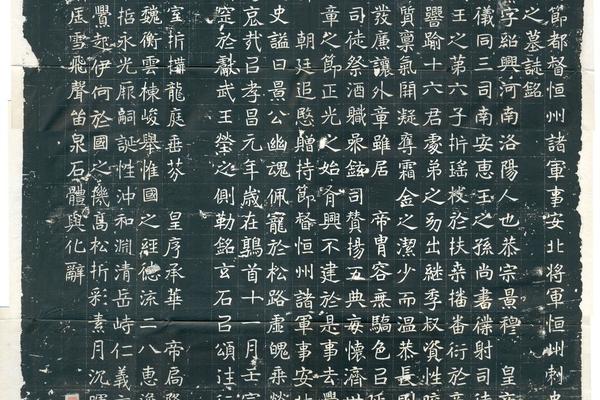 節都督恒州諸軍事安北將軍恒州刺史
之墓誌銘
字紹興河南洛陽人也恭宗景穆 皇
儀同三司南安惠王之孫尚書僕射司徒
王之第六子折瑤枝於扶桑播番衍於
譽踰十六君處弟之幼出継季叔資性
質稟氣開凝專霜金之潔少而温恭長
發廉讓外章雖居 帝胄容無驕色㠯
司徒祭酒職參鉉司贊揚五典妄懷濟世
章之節正光之始胥興不建於是事去
朝廷追愍贈持節督恒州諸軍事安北
史謚曰景公幽魂佩寵於松路虛魄乘
哀㢤㠯孝昌元年歲在鶉首十一月壬寅
窆於獻武王塋之側勒銘玄石㠯頌
室折龍庭垂芬 皇序承華 帝局
魏衡雲棟峻舉惟國之經德流二八惠
招永光厥嗣誕性沖和淵清岳峙仁義
舋起伊何於國之機高松折彩素月沉暉
雪飛聲笛泉石體與化辭